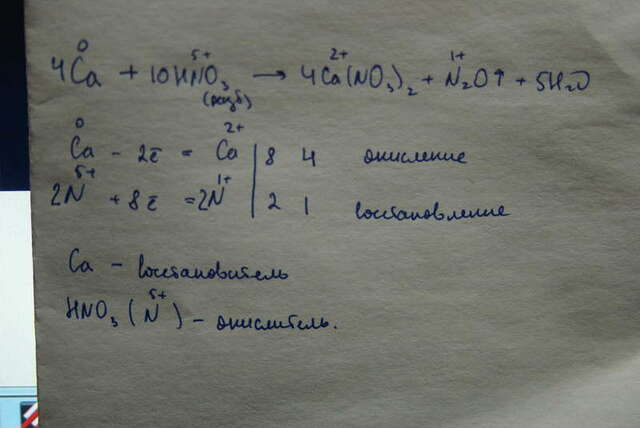 4Ca⁰ + 10HN⁵⁺O₃ (разб) → 4Ca²⁺(NO₃)₂ + N₂¹⁺O↑ + 5H₂O
Ca⁰ - 2ē = Ca²⁺ | 8 4 окисление
2N⁵⁺ + 8ē = 2N¹⁺ | 2 1 восстановление
Ca - восстановитель
HNO₃ (N⁵⁺) - окислитель.